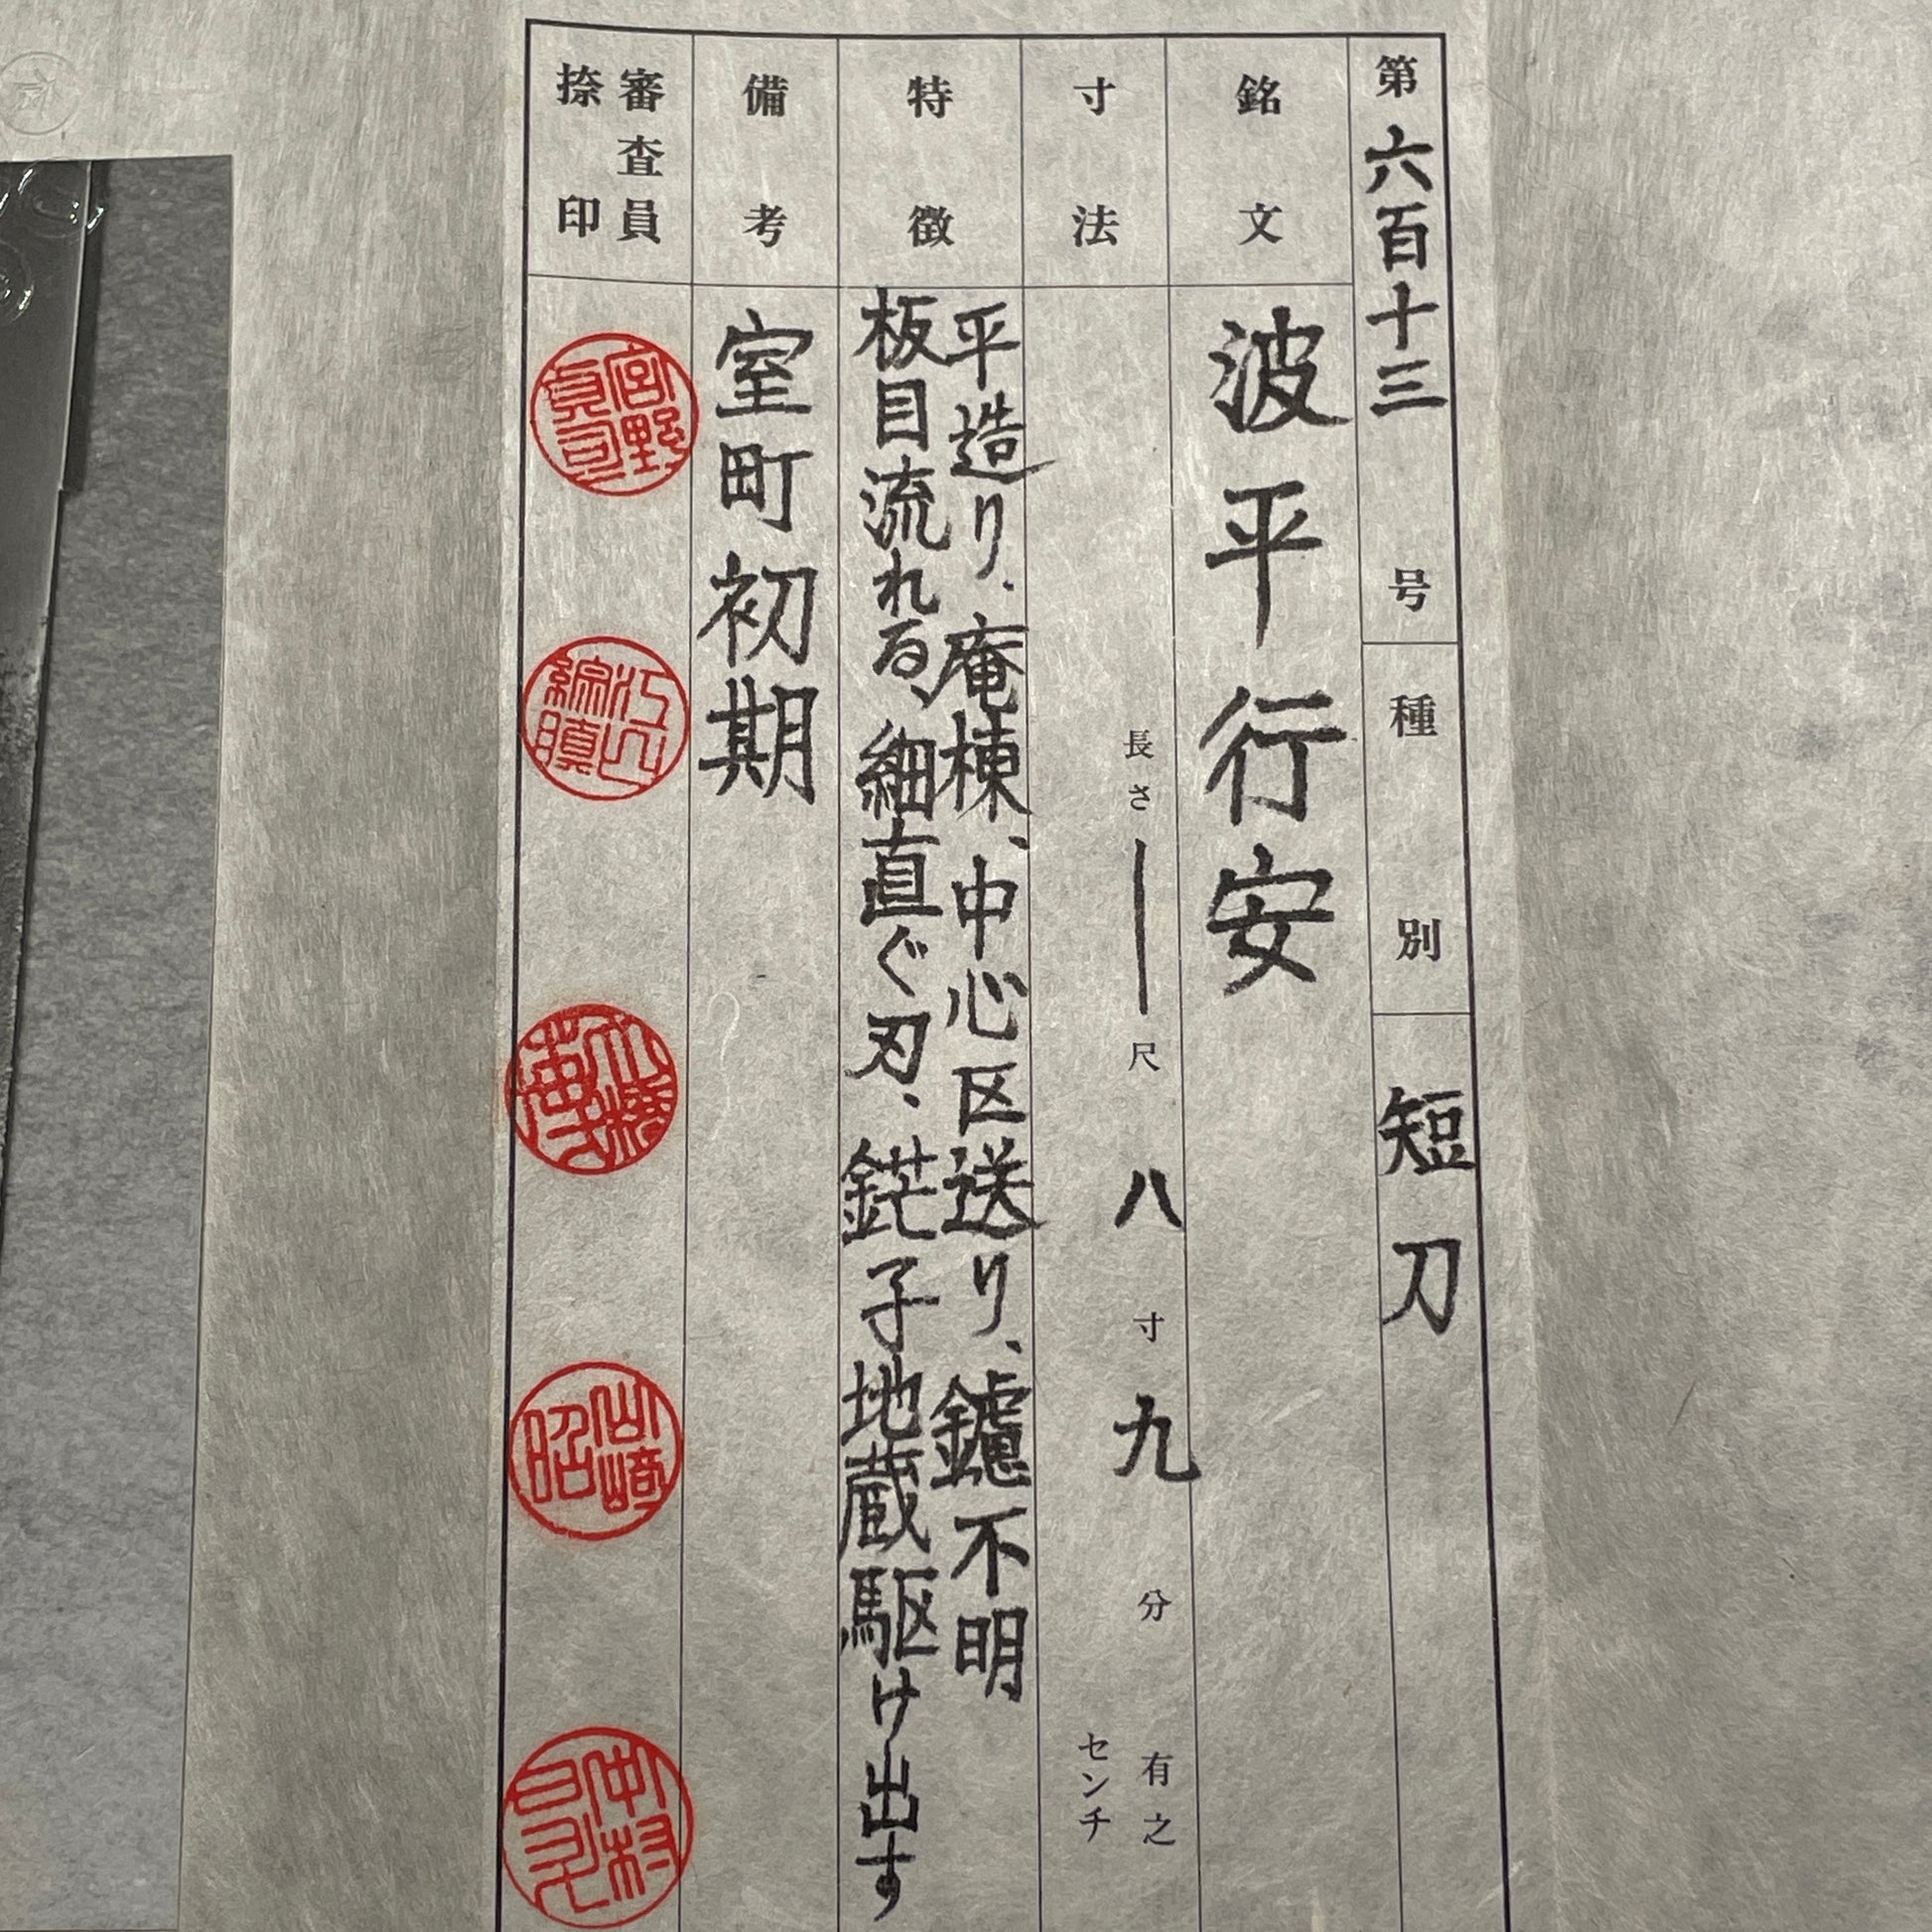 第六百十三号 種別 短刀
銘文 波平行安
寸法 長さ 尺 八寸九分 有之
センチ
特徴 平造り、庵棟、中心区送り、鑢不明
板目流れる、細直ぐ刃、鋩子地蔵駆け出す
備考 室町初期
審査員
捺印
江山
山崎昭
中村